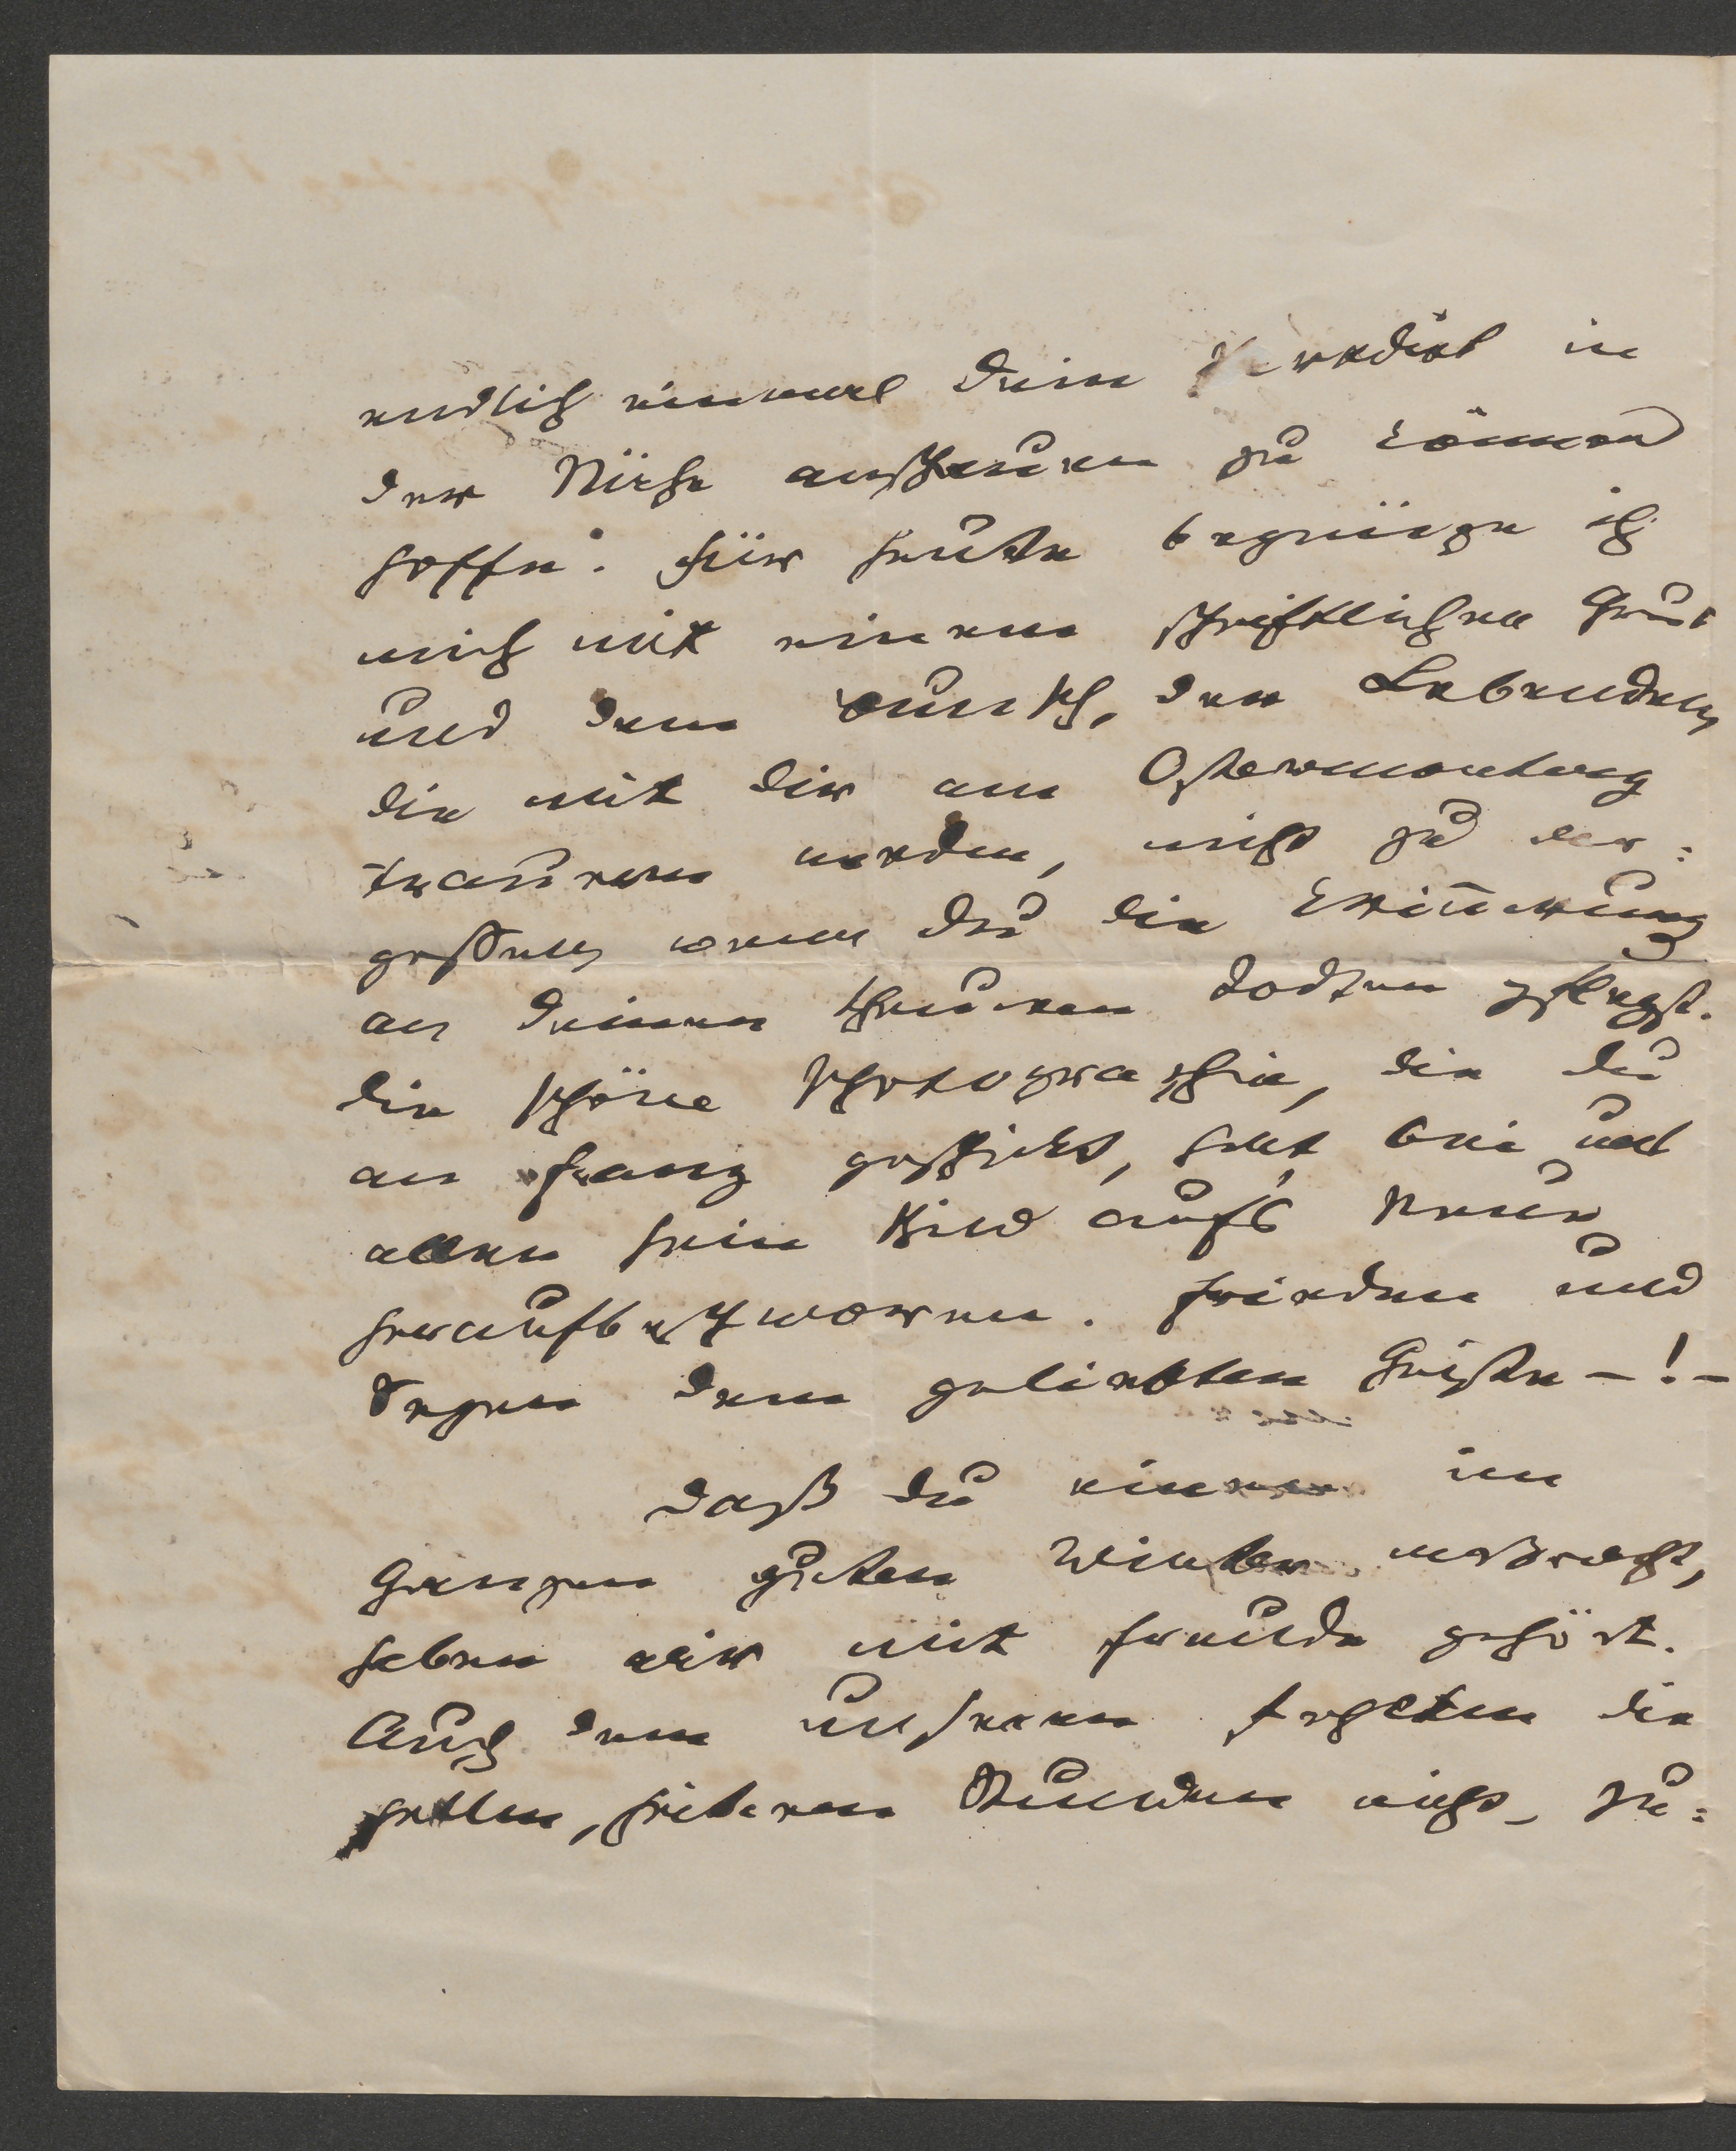 endlich einmal Dein Paradies in
der Nähe anschauen zu können
hoffe. Für heute begnüge ich
mich mit einem schriftlichen Gruß
und dem Wunsch, der Lebenden,
die mit Dir am Ostermontag
trauern werden, nicht zu ver:
gessen, wenn Du die Erinnerung
an Deinen theuren Todten pflegst.
Die schöne Photographie, die Du
an Franz geschickt, hat bei uns
allen sein Bild aufs Neue
heraufbeschworen. Frieden und
Segen dem geliebten Geiste – ! –
Daß Du einen im
Ganzen guten Winter verbracht,
haben wir mit Freude gehört.
Auch dem unseren fehlten die
hellen, heiteren Stunden nicht, zu: